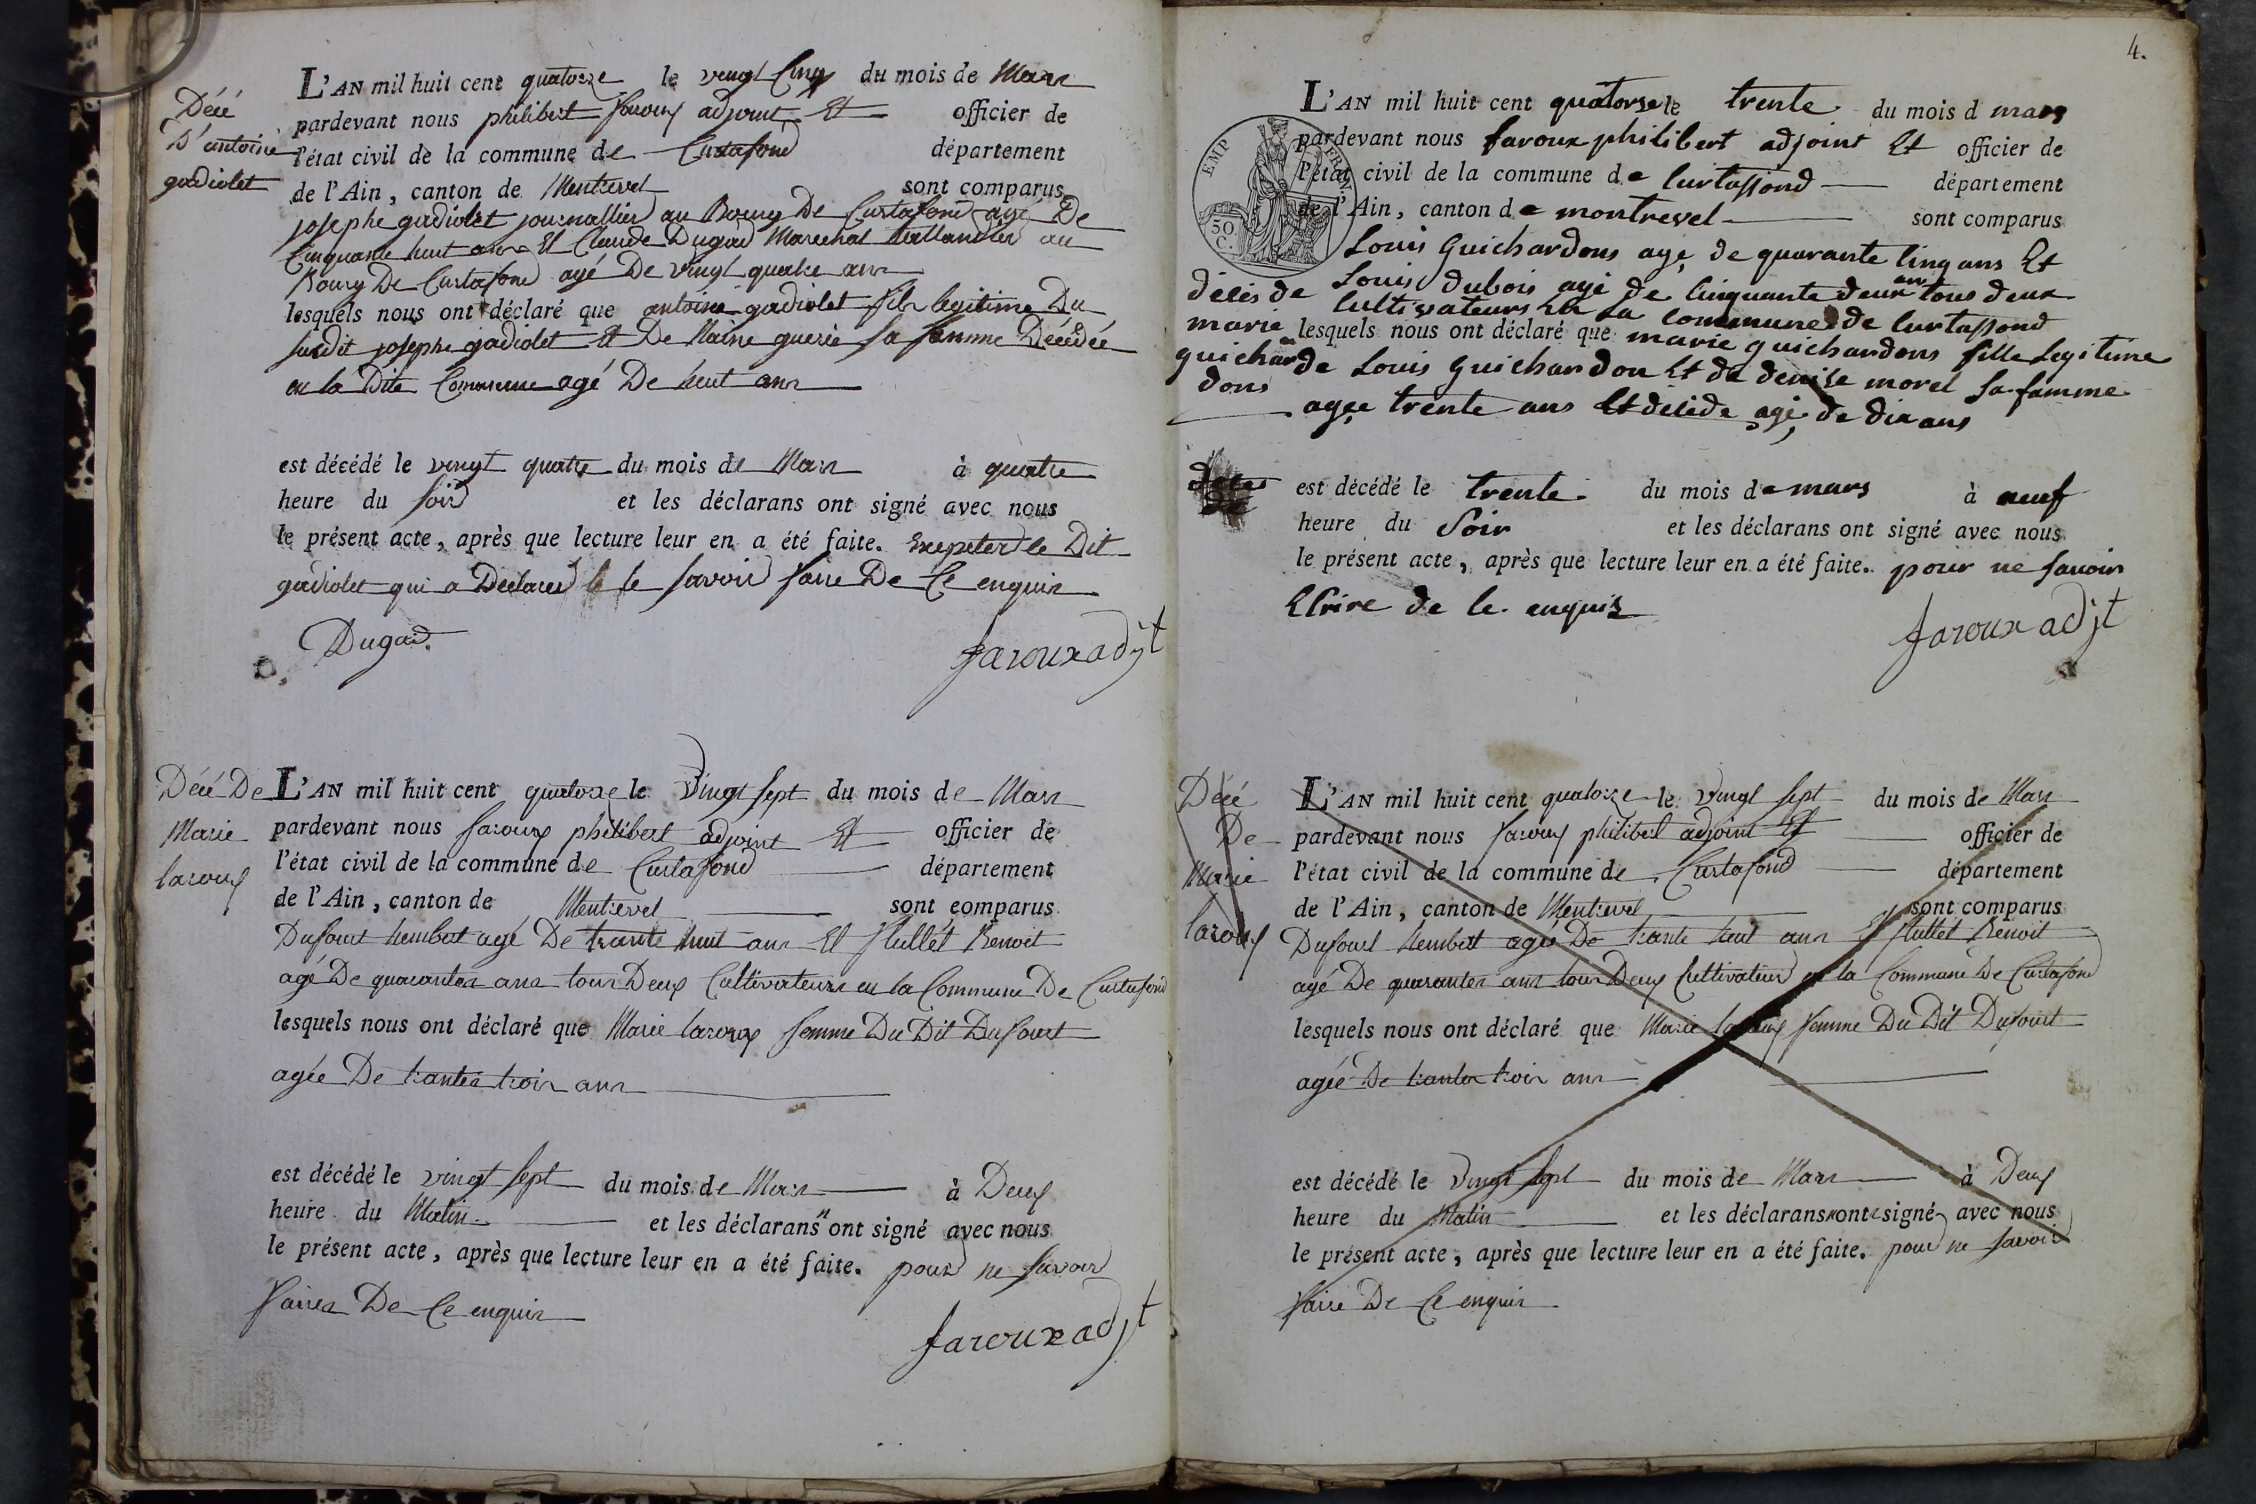 Décé
D'antoine
gadiolet
L'AN mil huit cent quatorze le vingt Cinq du mois de Mars
pardevant nous philibert faroux adjoint Et officier de
l'état civil de la commune de Curtafond département
de l'Ain, canton de Montrevel sont comparus
josephe gadiolet journallier au Bourg De Curtafond agé De
Cinquante huit ans Et Claude Dugad Marechal taillandier au
Bourg De Curtafond agé De vingt quatre ans
lesquels nous ont déclaré que antoine gadiolet fils legitime Du
susdit josephe gadiolet Et De Claire guerin sa femme Décédée
en la Dite Commune agé De huit ans
est décédé le vingt quatre du mois de Mars à quatre
heure du soir et les déclarans ont signé avec nous
le présent acte, après que lecture leur en a été faite. Excepter le Dit
gadiolet qui a Declarer le savoir faire De Ce enquis
Dugad.
faroux adjt
Décé De
Marie
laroux
L'AN mil huit cent quatorze le Vingt sept du mois de Mars
pardevant nous faroux philibert adjoint Et officier de
l'état civil de la commune de Curtafond département
de l'Ain, canton de Montrevel sont comparus
Dufour humbert agé De trante huit ans Et Bullet Benoit
agé De quarantes ans tous Deux Cultivateurs en la Commune De Curtafond
lesquels nous ont déclaré que Marie laroux femme Du Dit Dufourt
agée De trantes trois ans
est décédé le vingt sept du mois de Mars à Deux
heure du Matin et les déclarans n ont signé avec nous
le présent acte, après que lecture leur en a été faite. pour ne savoir
faires De Ce enquis
faroux adjt
4.
EMP FRAN
50
C.
L'AN mil huit cent quatorse le trente du mois d mars
pardevant nous faroux philibert adjoint Et officier de
l'état civil de la commune de Curtaffond département
de l'Ain, canton de montrevel sont comparus
Louis Guichardons agé de quarante Cinq ans Et
Louis Dubois agé de Cinquante deux ans tous deux
Cultivateurs En La Commune de Curtaffond
décés de
marie
guichar
dons
lesquels nous ont déclaré que marie guichardons fille Legitime
de Louis Guichardon Et de denise morel sa famme
agee trente ans Et décéde agé de dix ans
deces
de
est décédé le trente du mois de mars à neuf
heure du Soir et les déclarans ont signé avec nous
le présent acte, après que lecture leur en a été faite. pour ne savoir
Ecrire de Ce enquis
faroux adjt
Décé
De
Marie
laroux
L'AN mil huit cent quatorze le Vingt sept du mois de Mars
pardevant nous faroux philibert adjoint Et officier de
l'état civil de la commune de Curtafond département
de l'Ain, canton de Montrevel sont comparus
Dufourt humbert agée De trante huit ans Et Bullet Benoit
agé De quarantes ans tous Deux Cultivateur en la Commune De Curtafond
lesquels nous ont déclaré que Marie laroux femme Du Dit Dufourt
agée De trantes trois ans
est décédé le Vingt sept du mois de Mars à Deux
heure du Matin et les déclarans n ont signé avec nous
le présent acte, après que lecture leur en a été faite. pour ne savoir
faire De Ce enquis